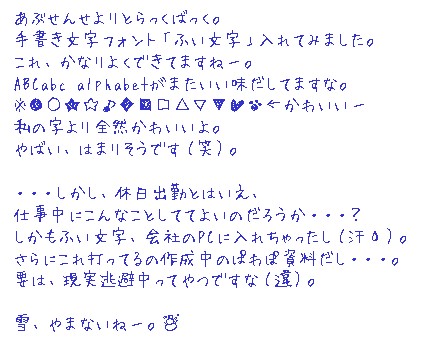 あぶせんせよりとらっくばっく。
手書き文字フォント「ふい文字」入れてみました。
これ、かなりよくできてますねー。
ABCabc alphabetがまたいい味だしてますな。
※●○★☆♪◆■□△▽▼♥🐾←かわいいー
私の字より全然かわいいよ。
やばい、はまりそうです（笑）。
・・・しかし、休日出勤とはいえ、
仕事中にこんなことしててよいのだろうか・・・？
しかもふい文字、会社のPCに入れちゃったし（汗💧）。
さらにこれ打ってるの作成中のぱわぽ資料だし・・・。
要は、現実逃避中ってやつですな（違）。
雪、やまないねー。☃